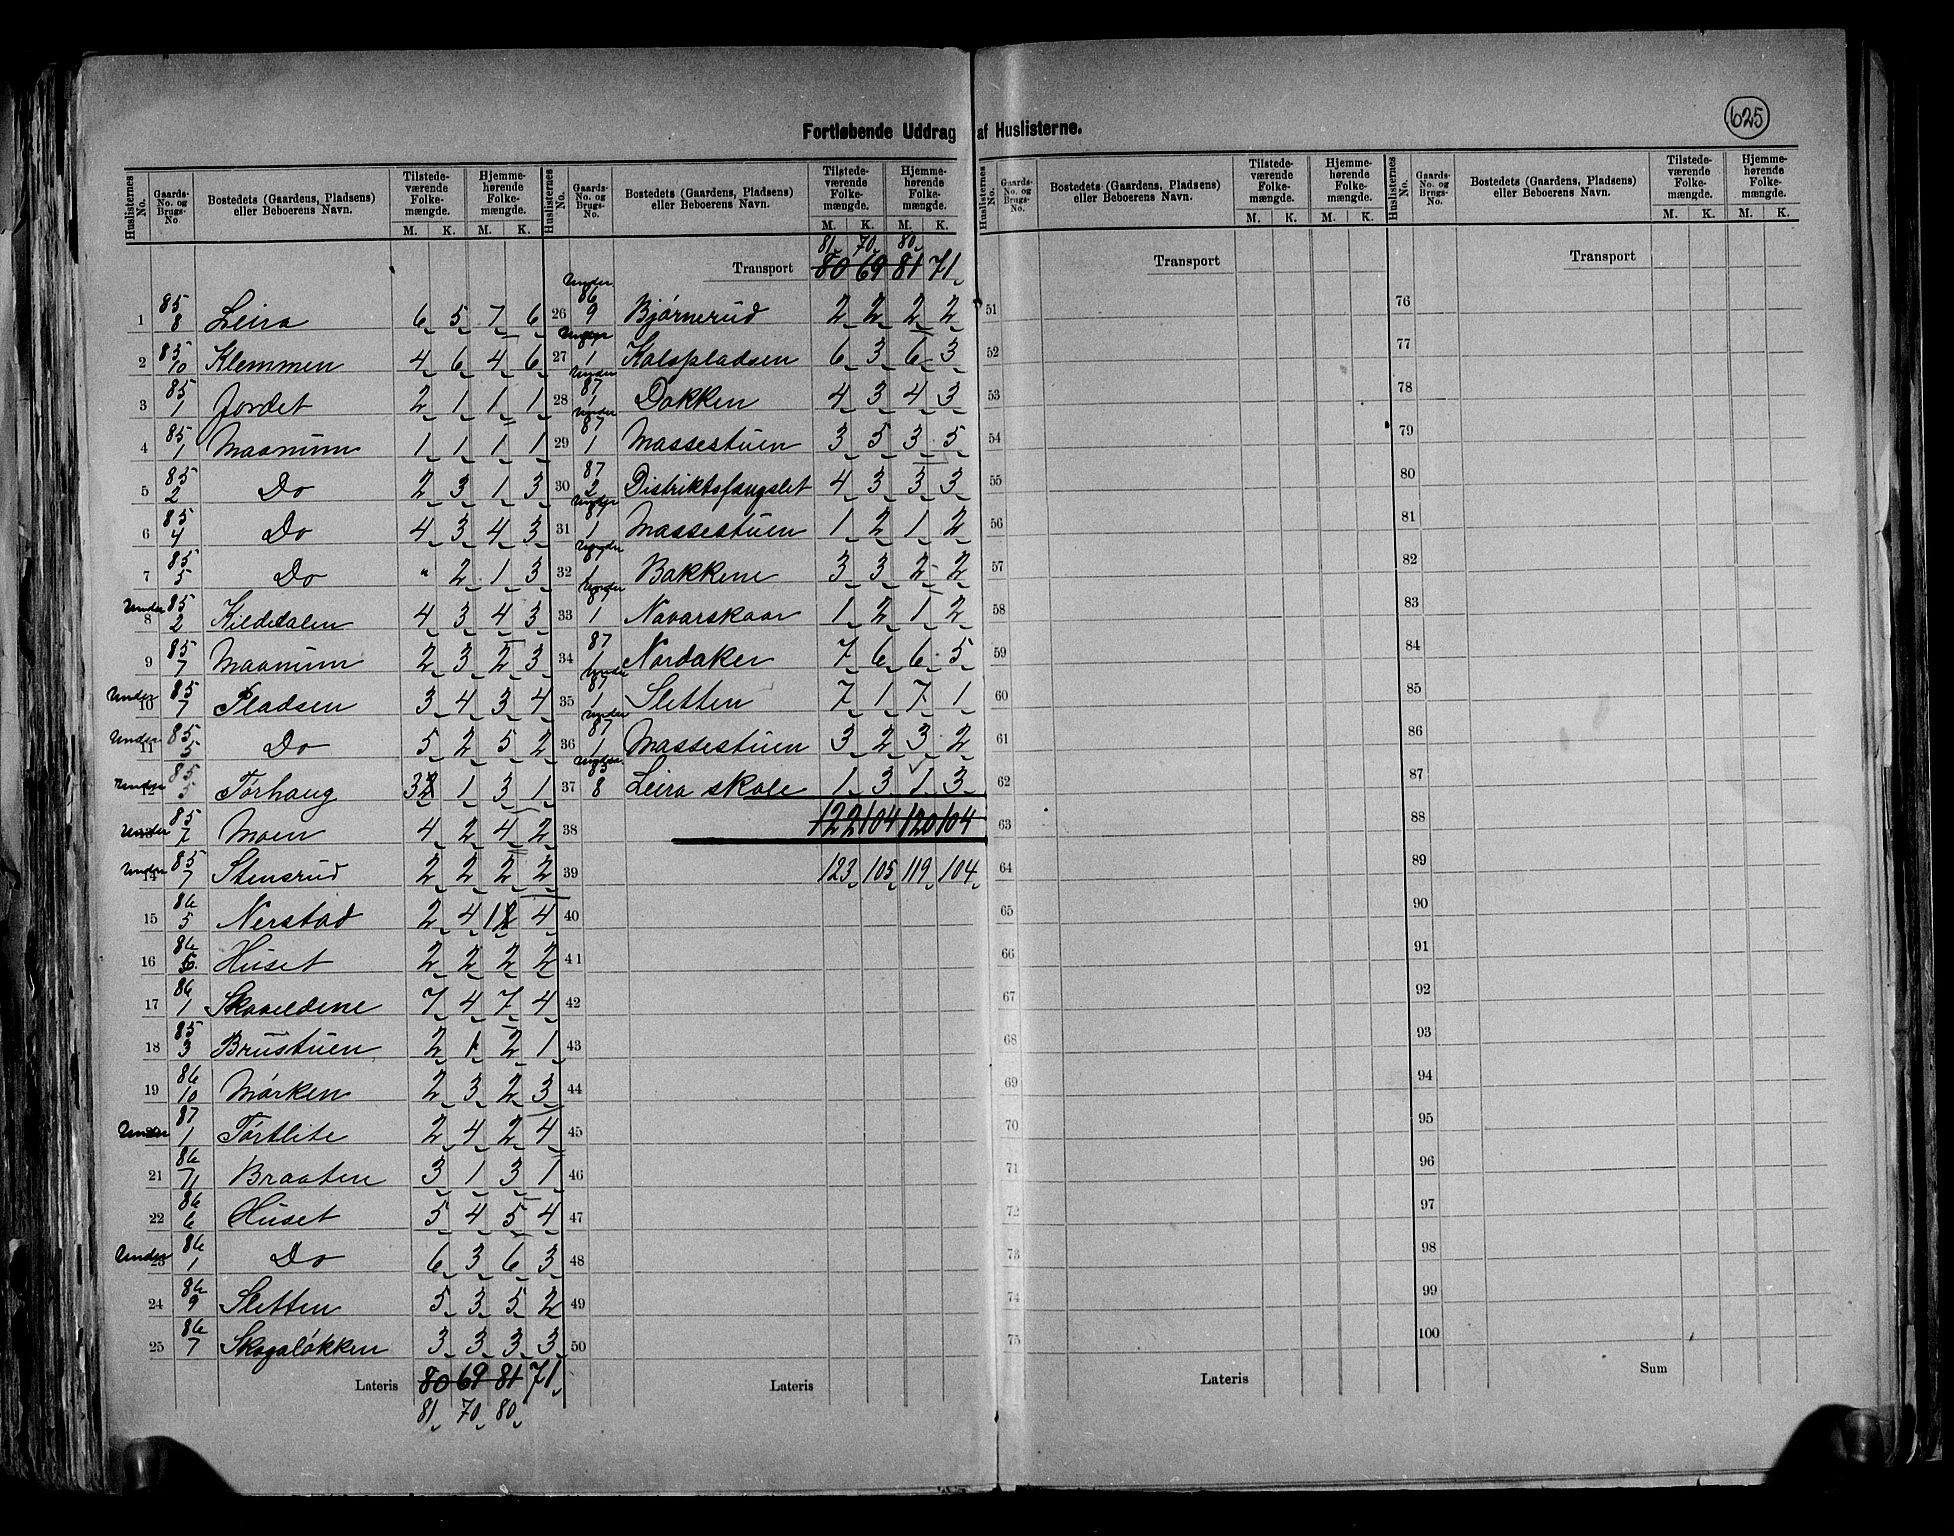 625
Fortløbende Uddrag af Huslisterne.
Huslisternes No. | Gaards-No. og Brugs-No. | Bostedets (Gaardens, Pladsens) eller Beboerens Navn. | Tilstedeværende Folkemængde. M. K. | Hjemmehørende Folkemængde. M. K.
1 | 85/8 | Leira | 6 | 5 | 7 | 6
2 | 85/10 | Klemmen | 4 | 6 | 4 | 6
3 | 85/1 | Jordet | 2 | 1 | 1 | 1
4 | 85/1 | Maanum | 1 | 1 | 1 | 1
5 | 85/2 | Do | 2 | 3 | 1 | 3
6 | 85/4 | Do | 4 | 3 | 4 | 3
7 | 85/5 | Do | " | 2 | 1 | 3
8 | Under 85/2 | Kildedalen | 4 | 3 | 4 | 3
9 | 85/7 | Maanum | 2 | 3 | 2 | 3
10 | Under 85/7 | Pladsen | 3 | 4 | 3 | 4
11 | Under 85/5 | Do | 5 | 2 | 5 | 2
12 | Under 85/5 | Torhaug | 3 2 | 1 | 3 | 1
Under 85/7 | Moen | 4 | 2 | 4 | 2
14 | Under 85/7 | Stensrud | 2 | 2 | 2 | 2
15 | 86/5 | Nerstad | 2 | 4 | 1 2 | 4
16 | 86/5 | Huset | 2 | 2 | 2 | 2
17 | 86/1 | Skaveldene | 7 | 4 | 7 | 4
18 | 85/3 | Brustuen | 2 | 1 | 2 | 1
19 | 86/10 | Mørken | 2 | 3 | 2 | 3
Under 87/1 | Tørtlite | 2 | 4 | 2 | 4
21 | 86/71 | Braaten | 3 | 1 | 3 | 1
22 | 86/6 | Huset | 5 | 4 | 5 | 4
23 | Under 86/1 | Do | 6 | 3 | 6 | 3
24 | 86/9 | Sletten | 5 | 3 | 5 | 2
25 | 86/7 | Skogaløkken | 3 | 3 | 3 | 3
Lateris | 80 | 69 | 81 | 71
81 | 70 | 80
Huslisternes No. | Gaards-No. og Brugs-No. | Bostedets (Gaardens, Pladsens) eller Beboerens Navn. | Tilstedeværende Folkemængde. M. K. | Hjemmehørende Folkemængde. M. K.
81 | 70 | 80
Transport | 80 | 69 | 81 | 71
26 | Under 86/9 | Bjørnerud | 2 | 2 | 2 | 2
27 | Under 1 | Kalspladsen | 6 | 3 | 6 | 3
28 | Under 87/1 | Dokken | 4 | 3 | 4 | 3
29 | Under 87/1 | Massestuen | 3 | 5 | 3 | 5
30 | 87/2 | Distriktsfængslet | 4 | 3 | 3 | 3
31 | Under 87/1 | Massestuen | 1 | 2 | 1 | 2
32 | Under 87/1 | Bakkene | 3 | 3 | 2 | 2
33 | Under 1 | Navarskaar | 1 | 2 | 1 | 2
34 | 87/1 | Nordaker | 7 | 6 | 6 | 5
35 | Under 87/1 | Sletten | 7 | 1 | 7 | 1
36 | Under 87/1 | Massestuen | 3 | 2 | 3 | 2
37 | Under 85/8 | Leira skole | 1 | 3 | 1 | 3
38 | 122 | 104 | 120 | 104
39 | 123 | 105 | 119 | 104
40
41
42
43
44
45
46
47
48
49
50
Lateris
Huslisternes No. | Gaards-No. og Brugs-No. | Bostedets (Gaardens, Pladsens) eller Beboerens Navn. | Tilstedeværende Folkemængde. M. K. | Hjemmehørende Folkemængde. M. K.
Transport
51
52
53
54
55
56
57
58
59
60
61
62
63
64
65
66
67
68
69
70
71
72
73
74
75
Lateris
Huslisternes No. | Gaards-No. og Brugs-No. | Bostedets (Gaardens, Pladsens) eller Beboerens Navn. | Tilstedeværende Folkemængde. M. K. | Hjemmehørende Folkemængde. M. K.
Transport
76
77
78
79
80
81
82
83
84
85
86
87
88
89
90
91
92
93
94
95
96
97
98
99
100
Sum